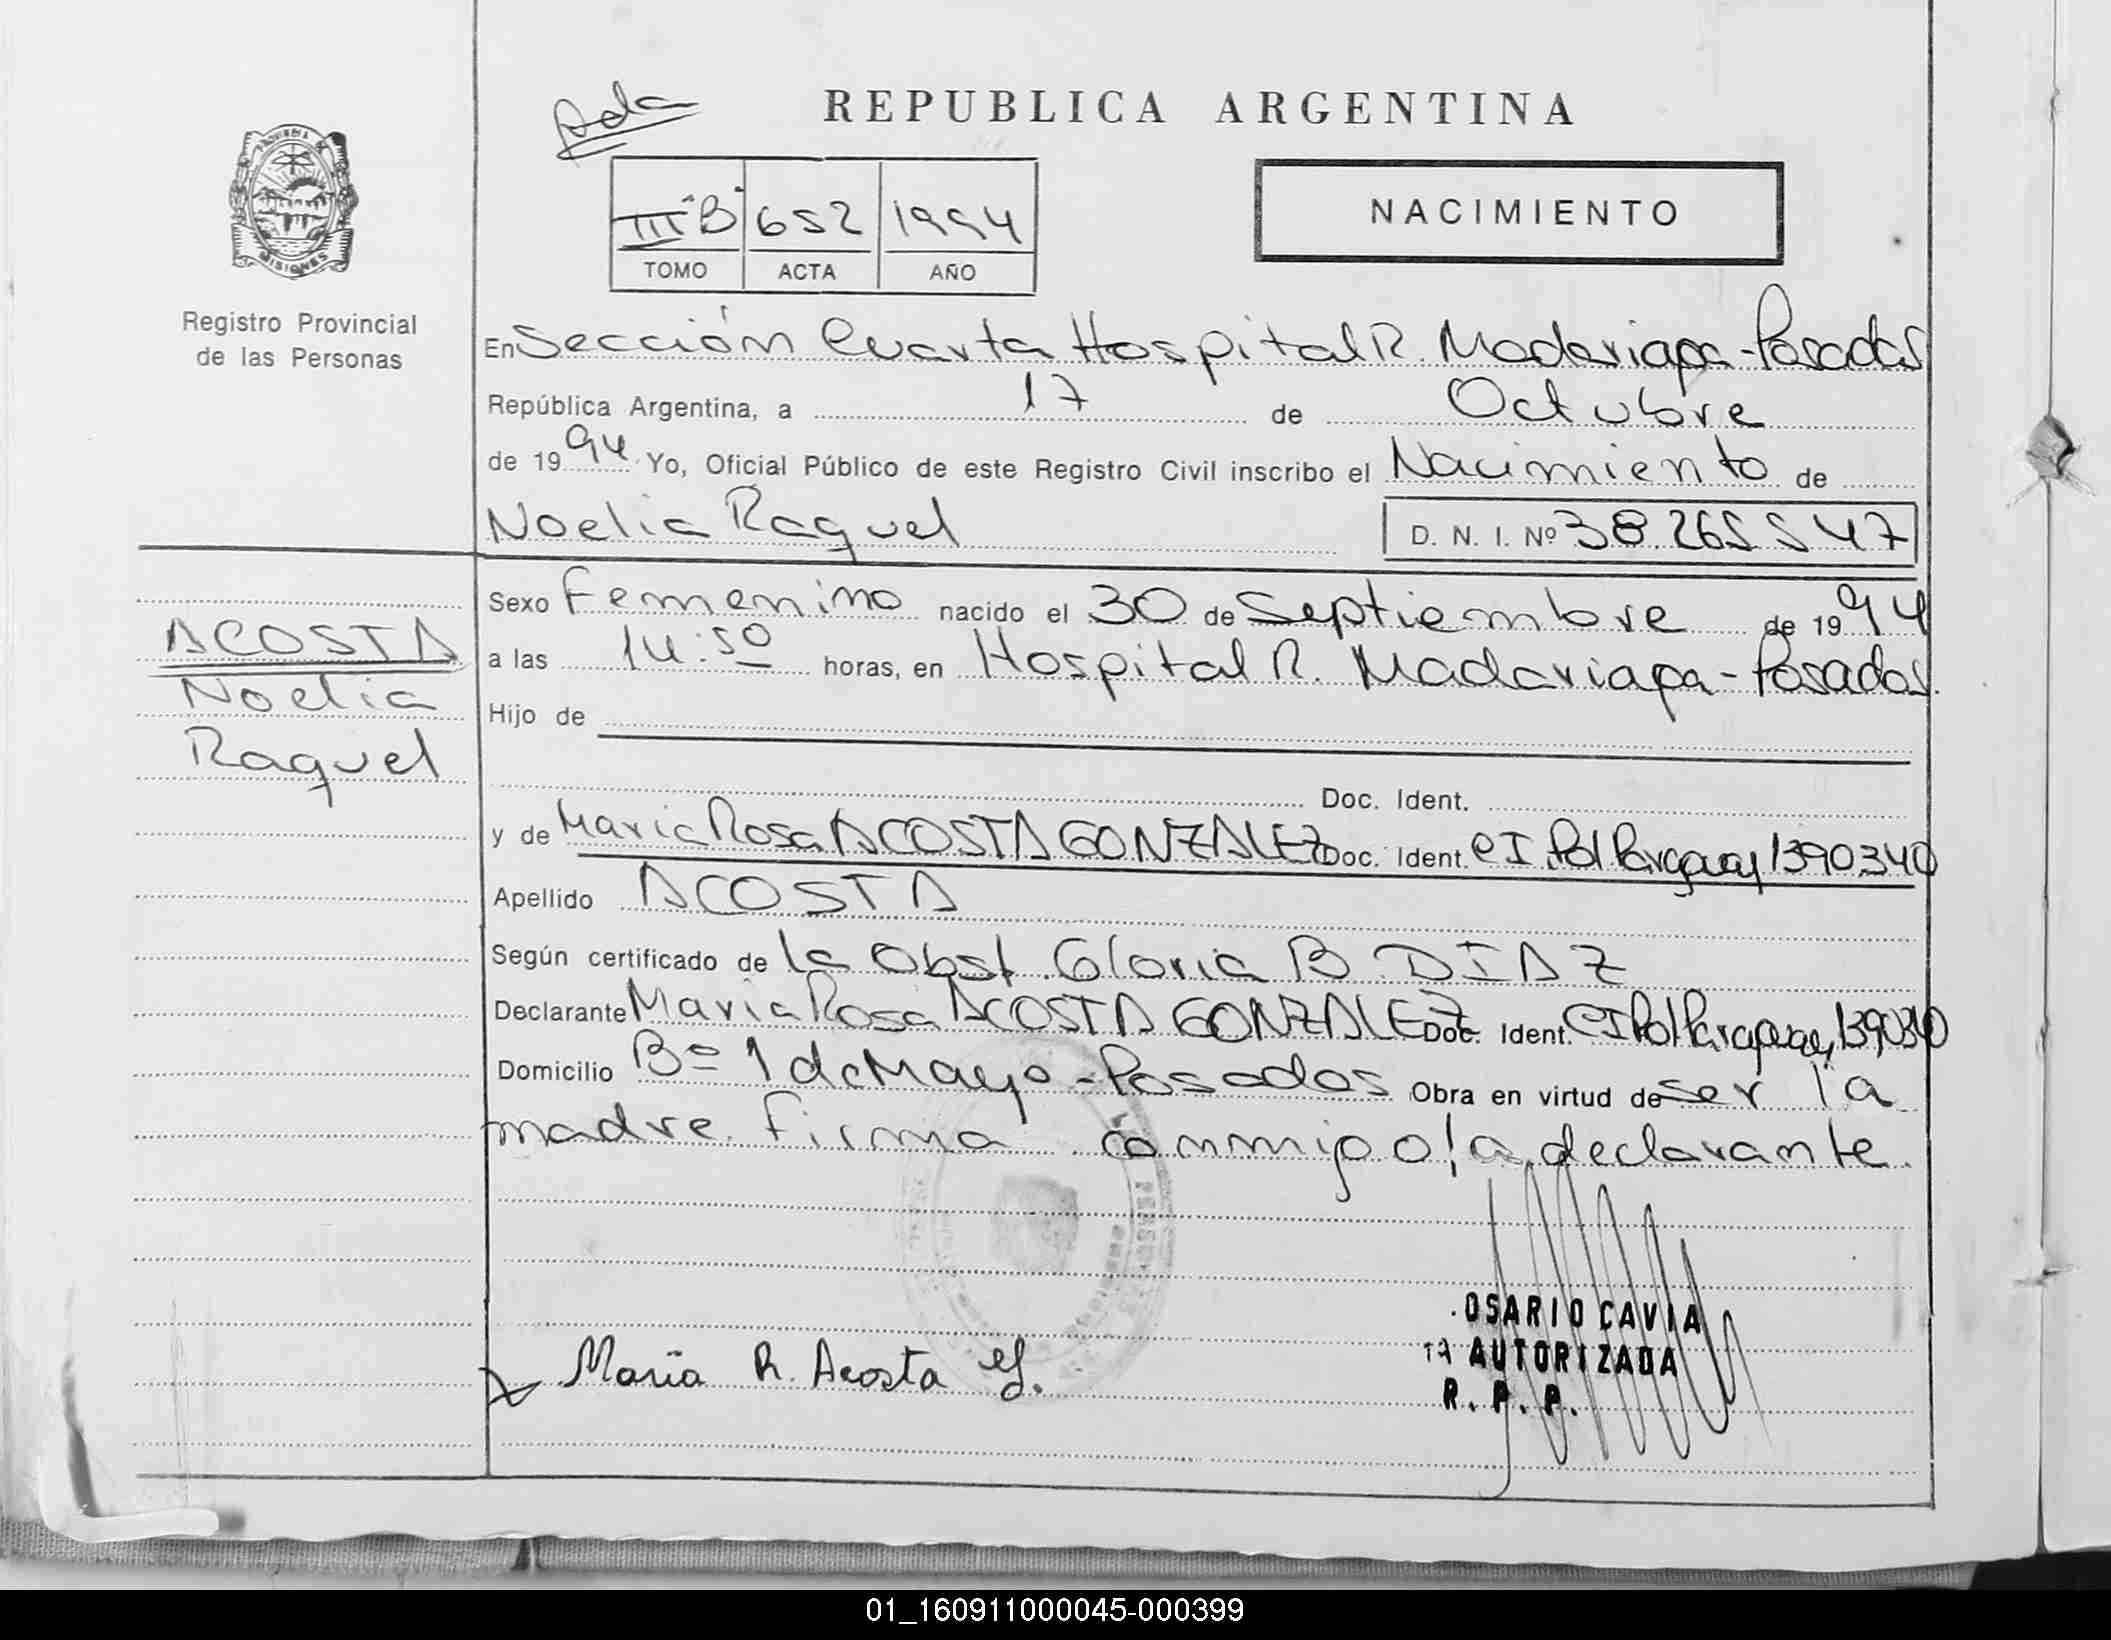 Ada
REPUBLICA ARGENTINA
III "B" 652 1994
TOMO ACTA AÑO
NACIMIENTO
MISIONES
Registro Provincial
de las Personas
En Sección Cuarta Hospital R. Madariaga - Posadas
República Argentina, a 17 de Octubre
de 1994 Yo, Oficial Público de este Registro Civil inscribo el Nacimiento de
Noelia Raquel D. N. I. Nº 38.265.547
ACOSTA
Noelia
Raquel
Sexo Femenino nacido el 30 de Septiembre de 1994
a las 14:50 horas, en Hospital R. Madariaga - Posadas.
Hijo de
Doc. Ident.
y de Maria Rosa ACOSTA GONZALEZ Doc. Ident. CI Pol Paraguay 1390340
Apellido ACOSTA
Según certificado de la Obst. Gloria B. DIAZ
Declarante Maria Rosa ACOSTA GONZALEZ Doc. Ident. CI Pol Paraguay 1390340
Domicilio Bº 1 de Mayo - Posadas Obra en virtud de ser la
madre. Firma conmigo la declarante.
OSARIO CAVIA
AUTORIZADA
R. P. P.
Maria R. Acosta G.
01_160911000045-000399